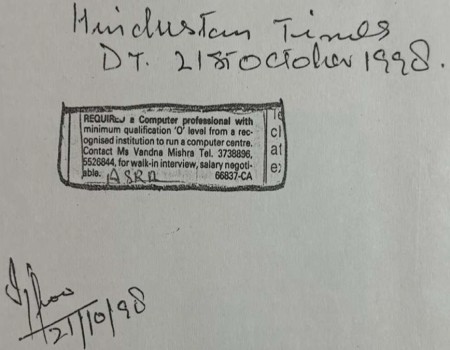 Hindustan Times
DT. 21st October 1998.
REQUIRED a Computer professional with
minimum qualification 'O' level from a rec-
ognised institution to run a computer centre.
Contact Ms Vandna Mishra Tel. 3738896,
5526844, for walk-in interview, salary negoti-
able. ASRA 66837-CA
cl
at
e:
21/10/98